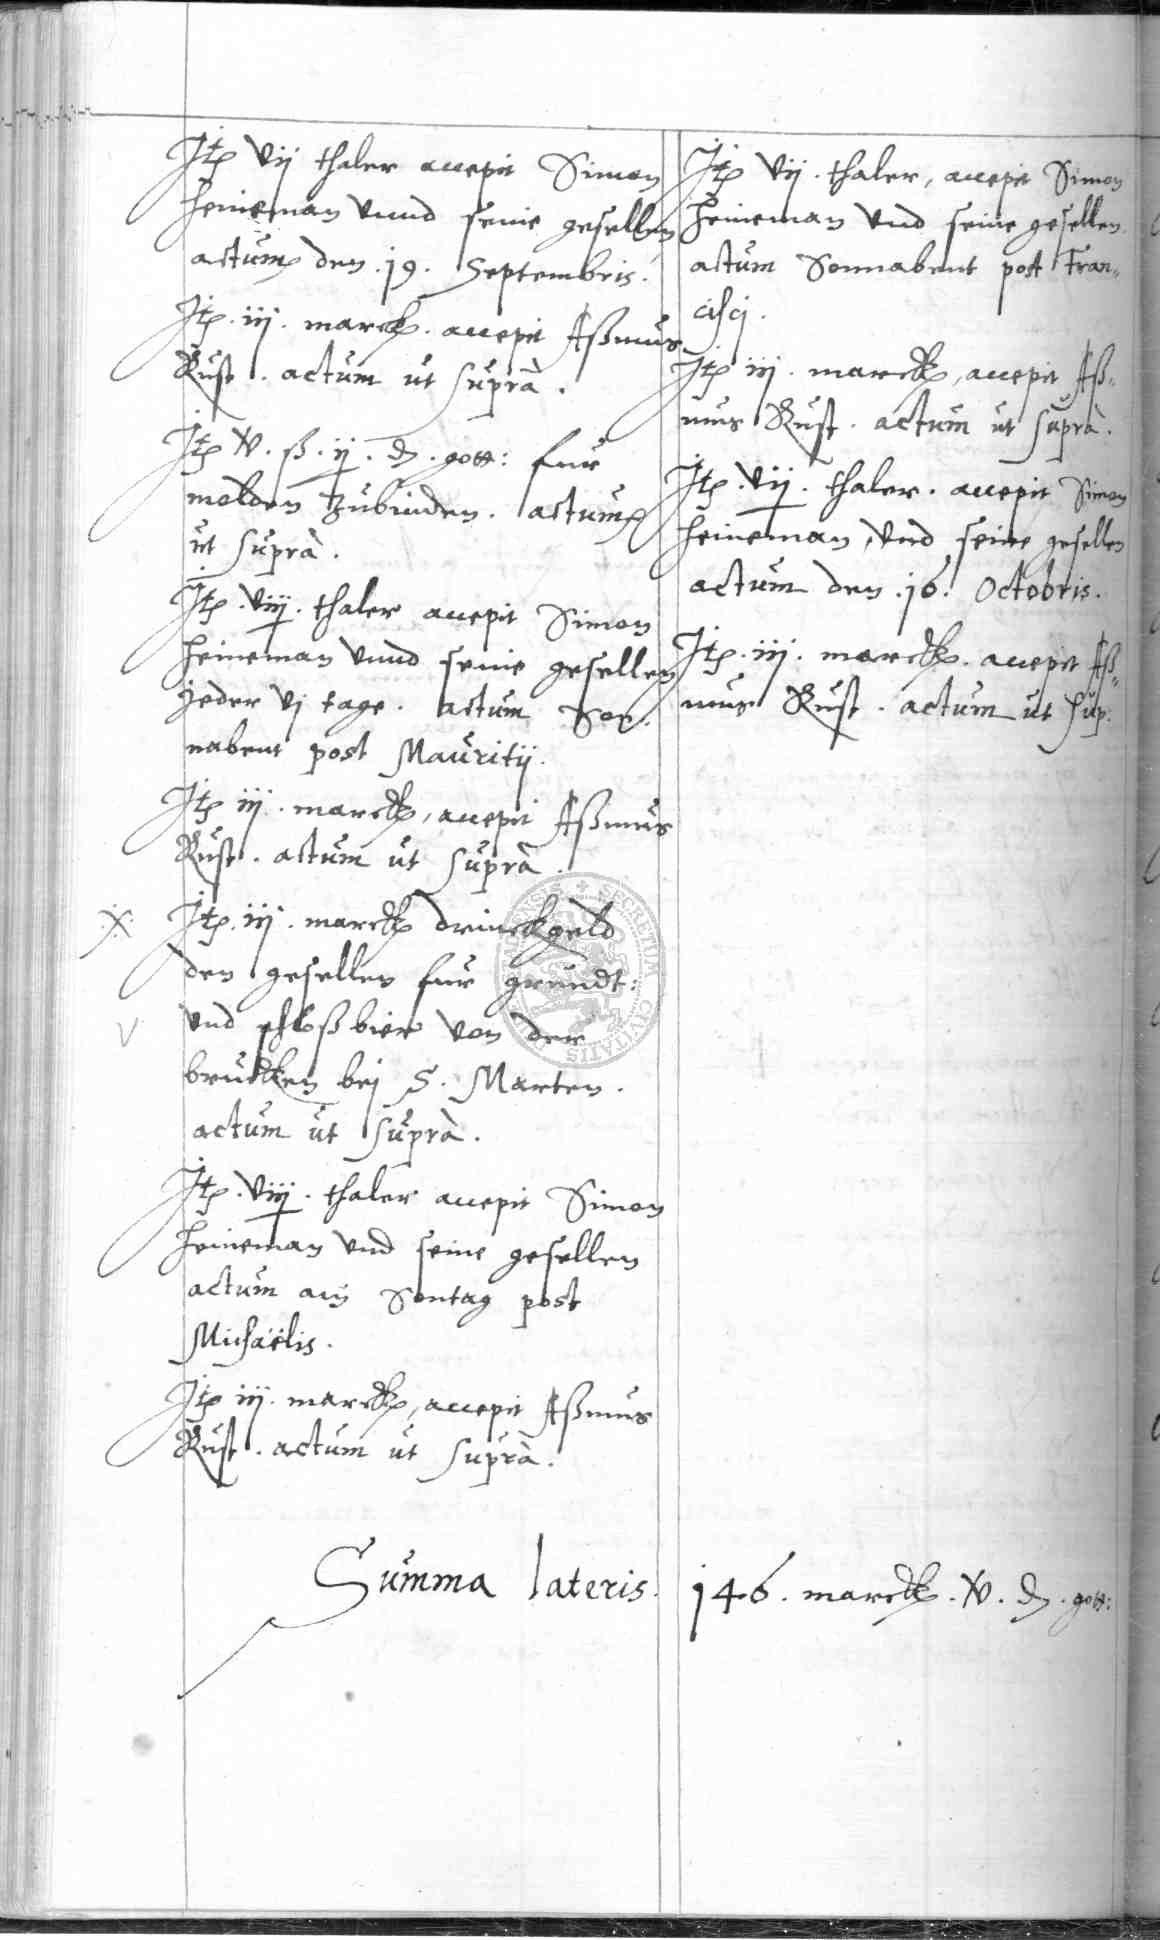 Itp vij thaler accepit Simon
Heineman vnnd seine gesellen
actum den .19. Septembris.
Itp. iij. marck. accepit Aßmus
Rust. actum ut suprà.
Itp v. ß. ij. d. gott: fur
molden zubinden. actum
ut suprà.
Itp. viij. thaler accepit Simon
Heineman vnnd seine gesellen
jeder vj tage. actum Son-
nabent post Mauritij.
Itp iij. marck, accepit Aßmus
Rust. actum ut suprà.
Itp. iij. marck drinckgeld
den gesellen fur grundt:
vnd schloßbier von der
brucken bej S. Marten.
actum ut suprà.
Itp. viij. thaler accepit Simon
Heineman vnd seine gesellen
actum am Sontag post
Michaëlis.
Itp iij. marck, accepit Aßmus
Rust. actum ut suprà.
Itp vij. thaler, accepit Simon
Heineman vnd seine gesellen.
actum Sonnabent post Fran-
cisci.
Itp iij. marck, accepit Aß-
mus Rust. actum ut suprà.
Itp. vij. thaler. accepit Simon
Heineman, vnd seine gesellen
actum den .16. Octobris.
Itp. iij. marck. accepit Aß-
mus Rust. actum ut sup:
Summa lateris. 146. marck. v. d. gott:
SECRETUM CIVITATIS